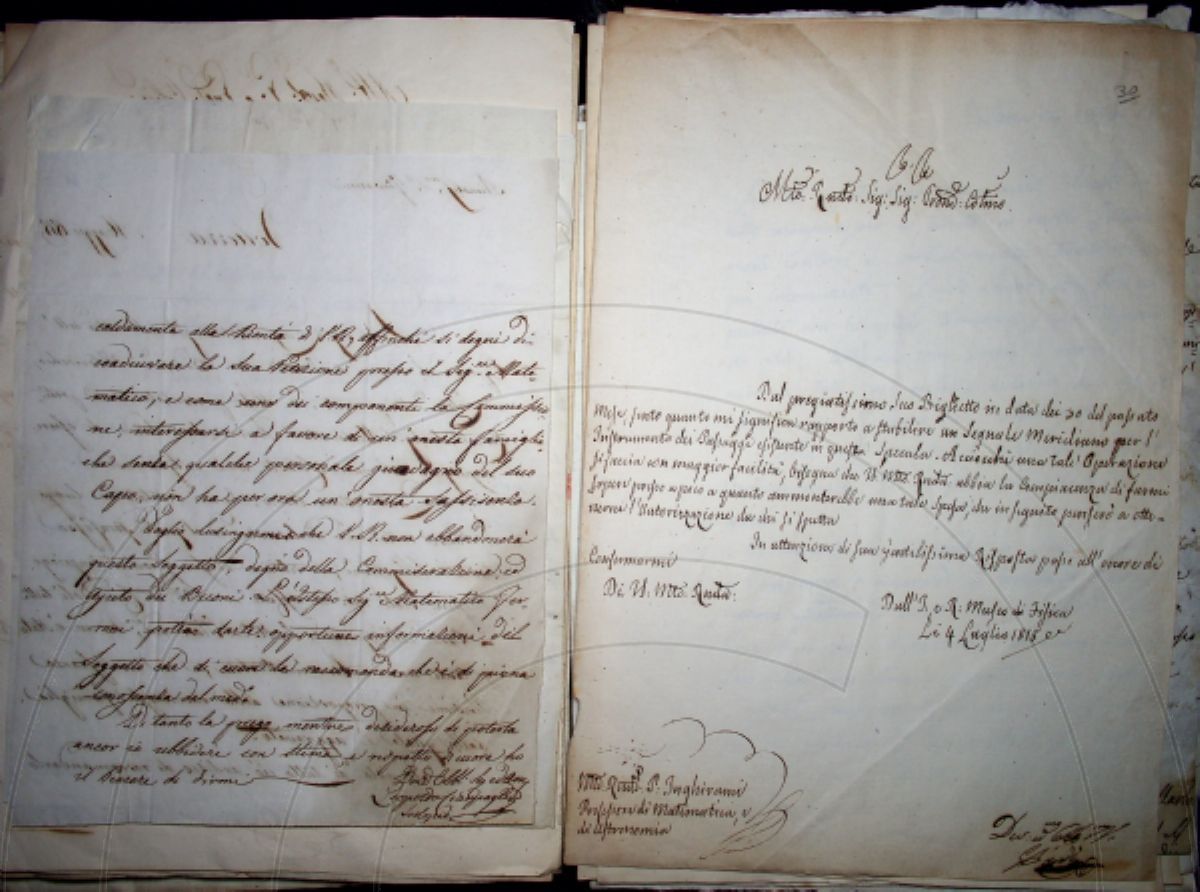 caldamente alla Bontà di S. R. affinchè si degni di
coadiuvare la sua Petizione presso il Sig.re Mate-
matico, e come uno dei componenti la Commissio-
ne, interessarsi a favore di un' onesta famiglia
che senza qualche personale guadagno del suo
Capo, non ha per ora un' onesta sussistenza.
Voglio lusingarmi che S. R. non abbandonerà
questo Soggetto, degno della Commiserazione, ed
ajuto dei Buoni. L'istesso Sig.re Matematico
potrà darle opportune informazioni del
Soggetto che di cuore le raccomando, che è di piena
conoscenza del med.o
Di tanto la prego, mentre desideroso di poterla
ancor io ubbidire con stima e rispetto di cuore ho
il piacere di dirmi
30
Mto. Rndo. Sig: Sig: Prone. Colmo.
Dal pregiatissimo Suo Biglietto in data dei 30 del passato
Mese, sento quanto mi significa rapporto a stabilire un Segnale Meridiano per l'
Instrumento dei Passaggi esistente in questa Specula. Acciocchè una tale Operazione
si faccia con maggior facilità, bisogna che V. Mto. Rnda. abbia la Compiacenza di farmi
sapere presso a poco a quanto ammonterebbe una tale spesa, che in seguito penserò a otte-
nerne l'Autorizzazione da chi si spetta
In attenzione di sua gentilissima Risposta passo all'onore di
Confermarmi
Di V. Mto. Rnda.
Dall' I. e R. Museo di Fisica
Li 4 Luglio 1818
Mto. Rndo. P. Inghirami
Professore di Matematica, e
di Astronomia